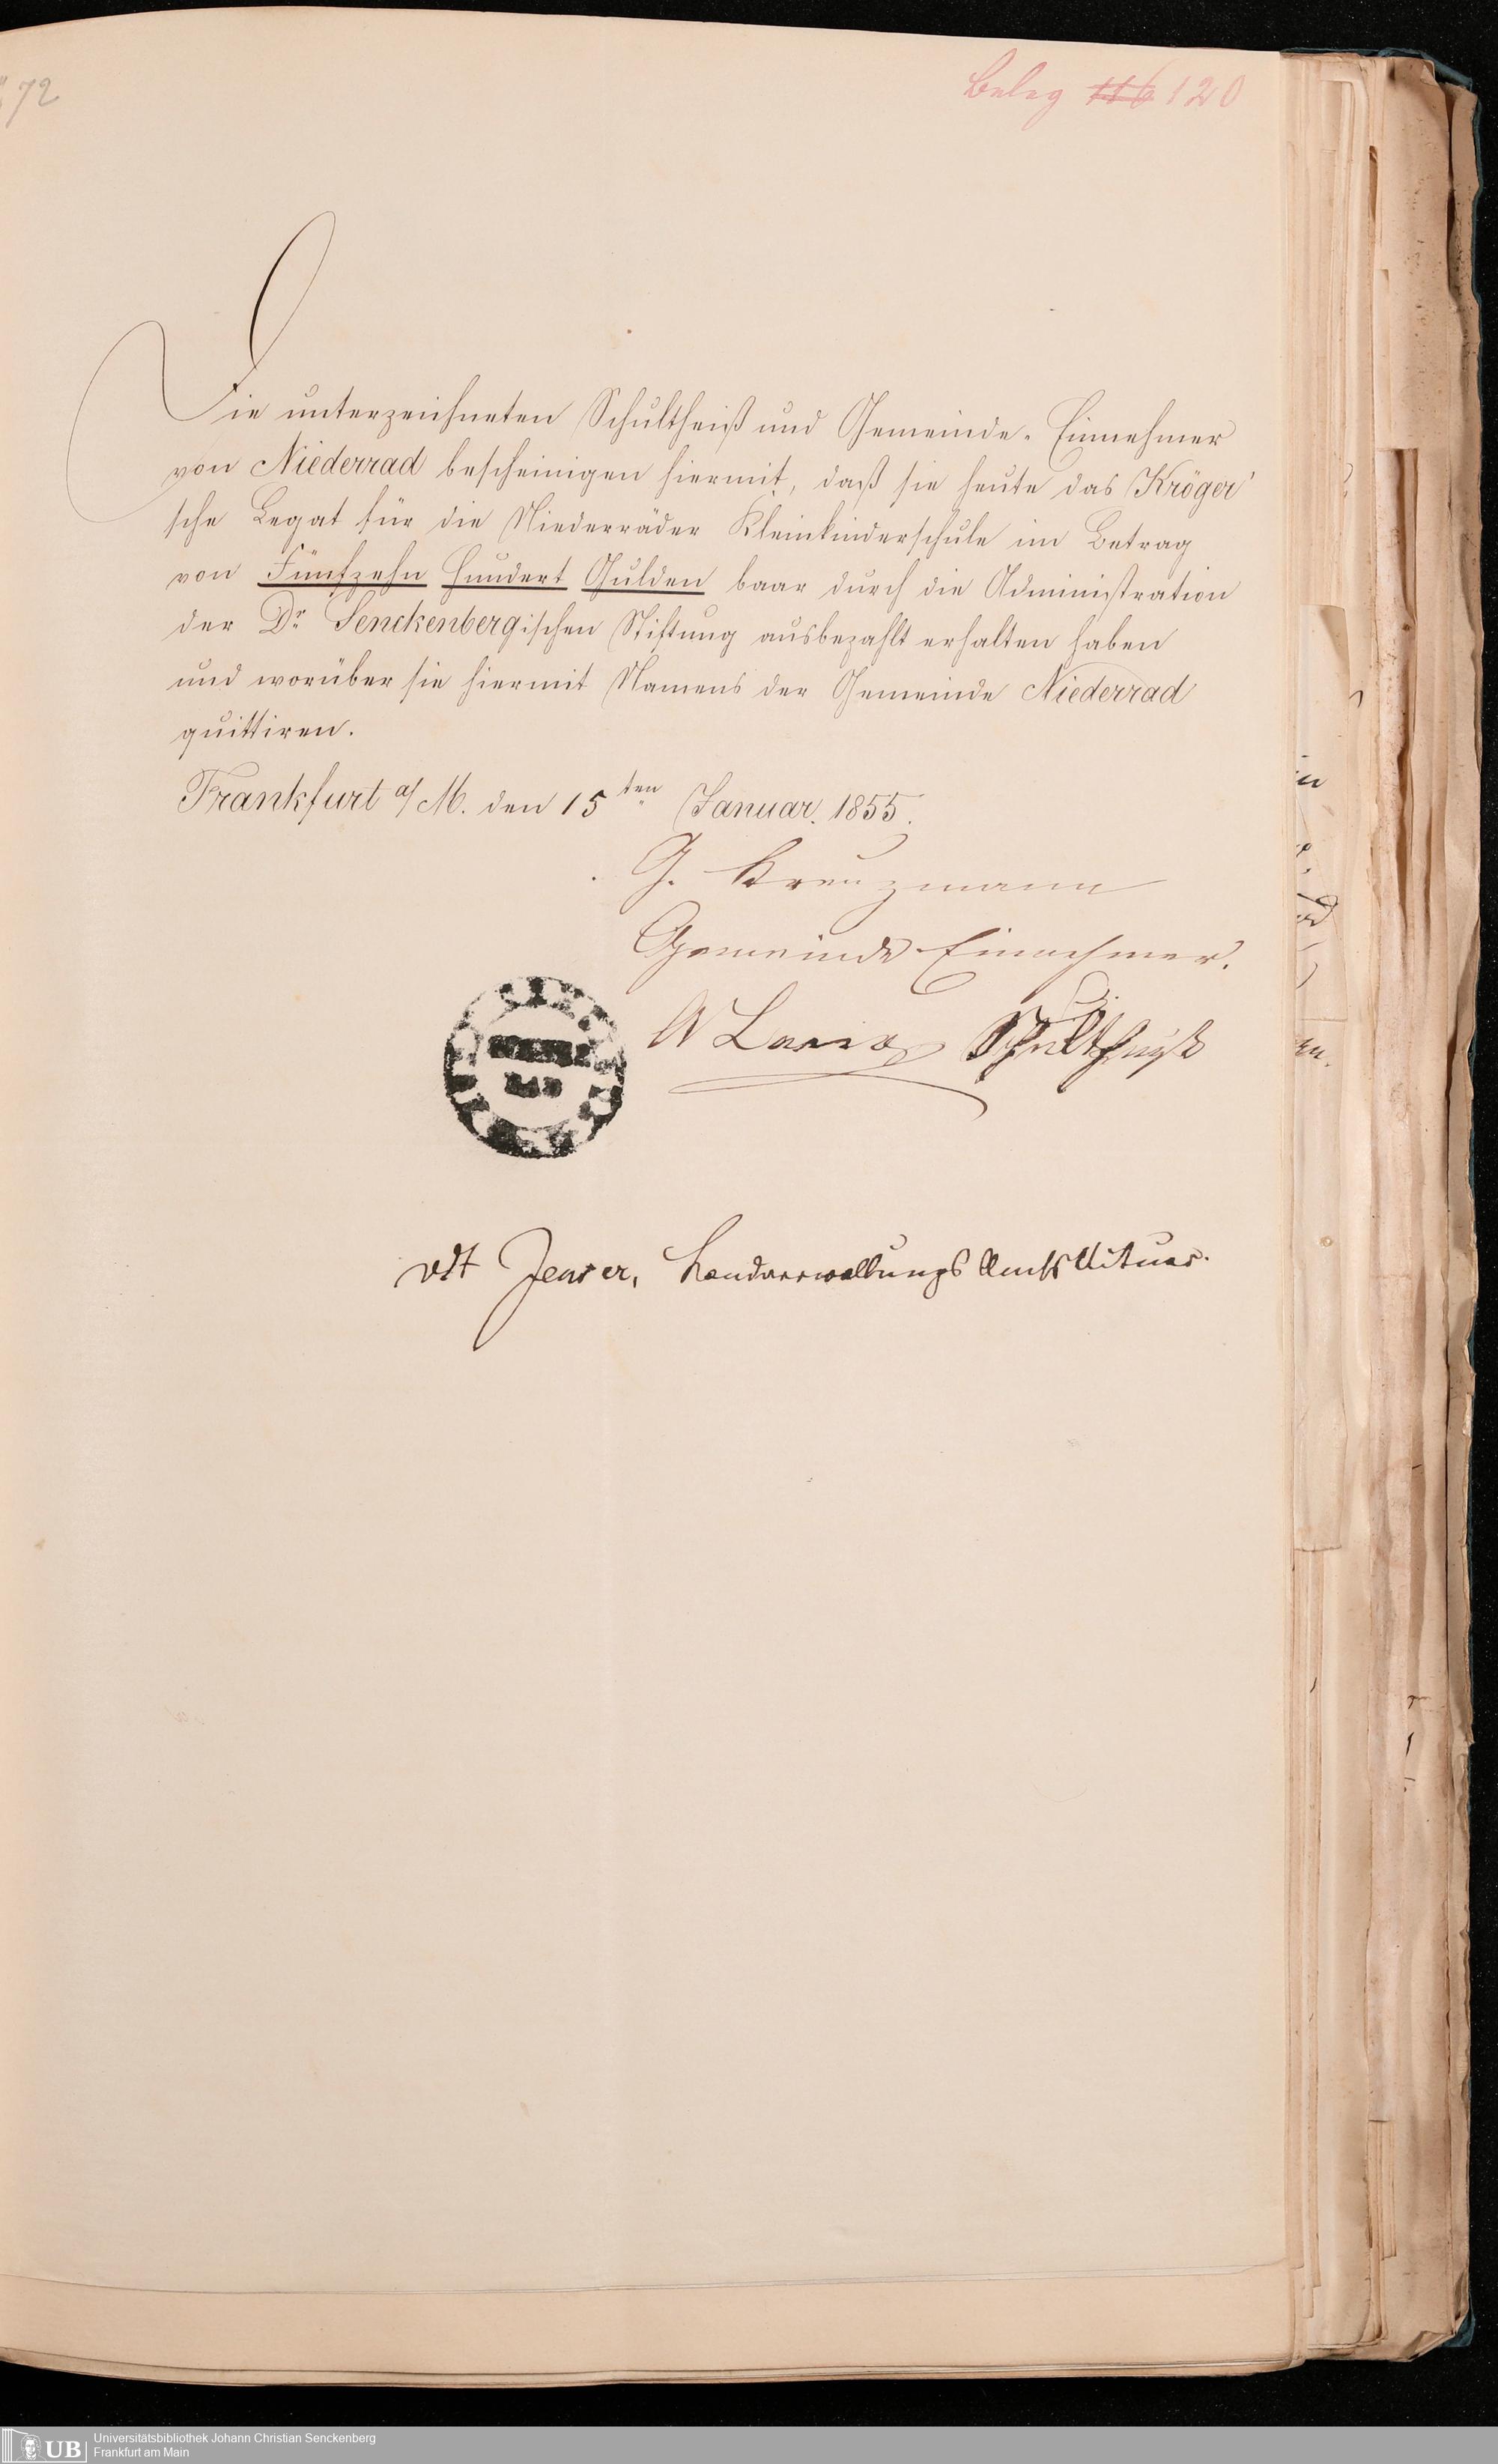 72
Beleg 116 120
Die unterzeichneten Schultheiß und Gemeinde-Einnehmer
von Niederrad bescheinigen hiermit, daß sie heute das Kröger'
sche Legat für die Niederräder Kleinkinderschule im Betrag
von Fünfzehn Hundert Gulden baar durch die Administration
der Dr Senckenbergischen Stiftung ausbezahlt erhalten haben
und worüber sie hiermit Namens der Gemeinde Niederrad
quittiren.
Frankfurt a/M. den 15ten Januar. 1855.
G. Kreuzmann
Gemeinde Einnehmer.
Schultheiß
vdt Landverwaltungs Amts Actuar.
UB
Universitätsbibliothek Johann Christian Senckenberg
Frankfurt am Main